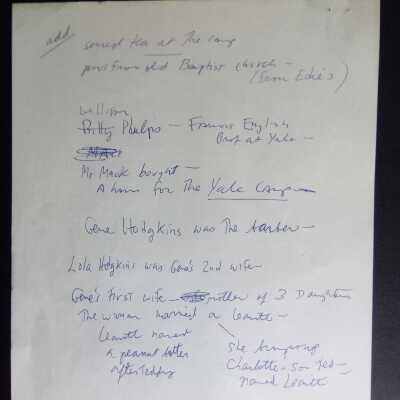 add served tea at The camp
pews from old Baptist church –
(from Edie's)
William
Billy Phelps – Famous English
Prof at Yale –
Mr Mack bought –
A home for The Yale Camp –
Gene Hodgkins was The barber –
Lola Hodgkins was Gene's 2nd wife –
Gene's First wife – mother of 3 Daughters
The woman married a Leavitt –
Leavitt named
a peanut butter
after Teddy
she
Charlotte – son Ted –
named Leavitt